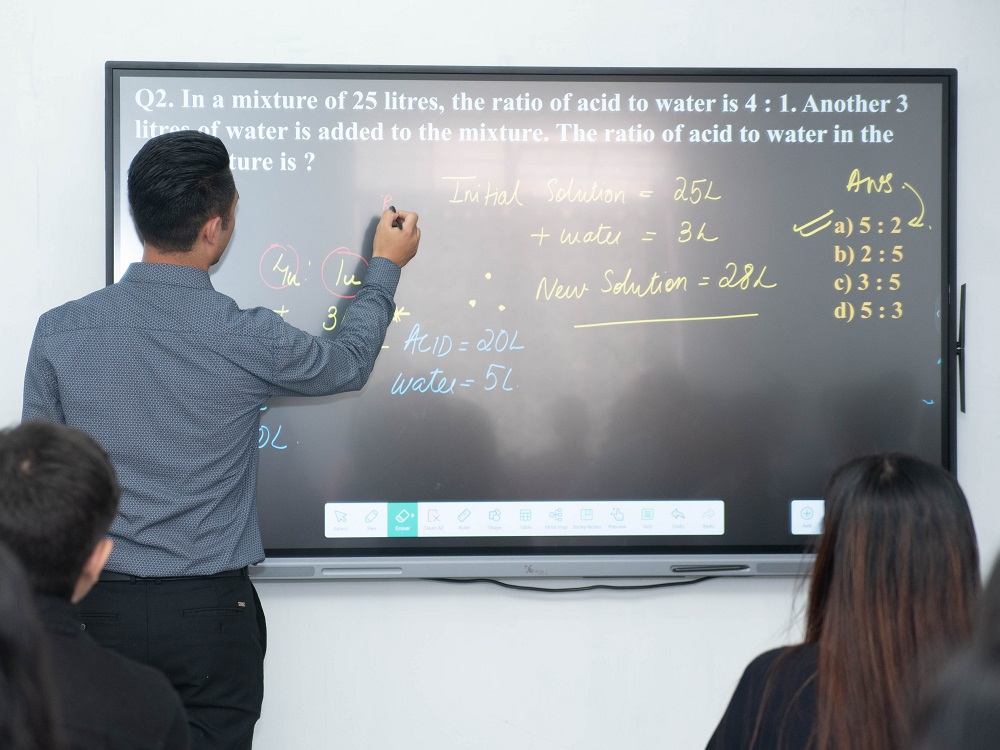 Q2. In a mixture of 25 litres, the ratio of acid to water is 4 : 1. Another 3
litres of water is added to the mixture. The ratio of acid to water in the
ture is ?
Initial Solution = 25L
+ water = 3L
∴ New Solution = 28L
Ans.
a) 5 : 2
b) 2 : 5
c) 3 : 5
d) 5 : 3
4u : 1u
+ 3
ACID = 20L
water = 5L
0L.
Select Pen Eraser Clear All Ruler Shapes Table Mind Map Sticky Notes Undo Redo Add